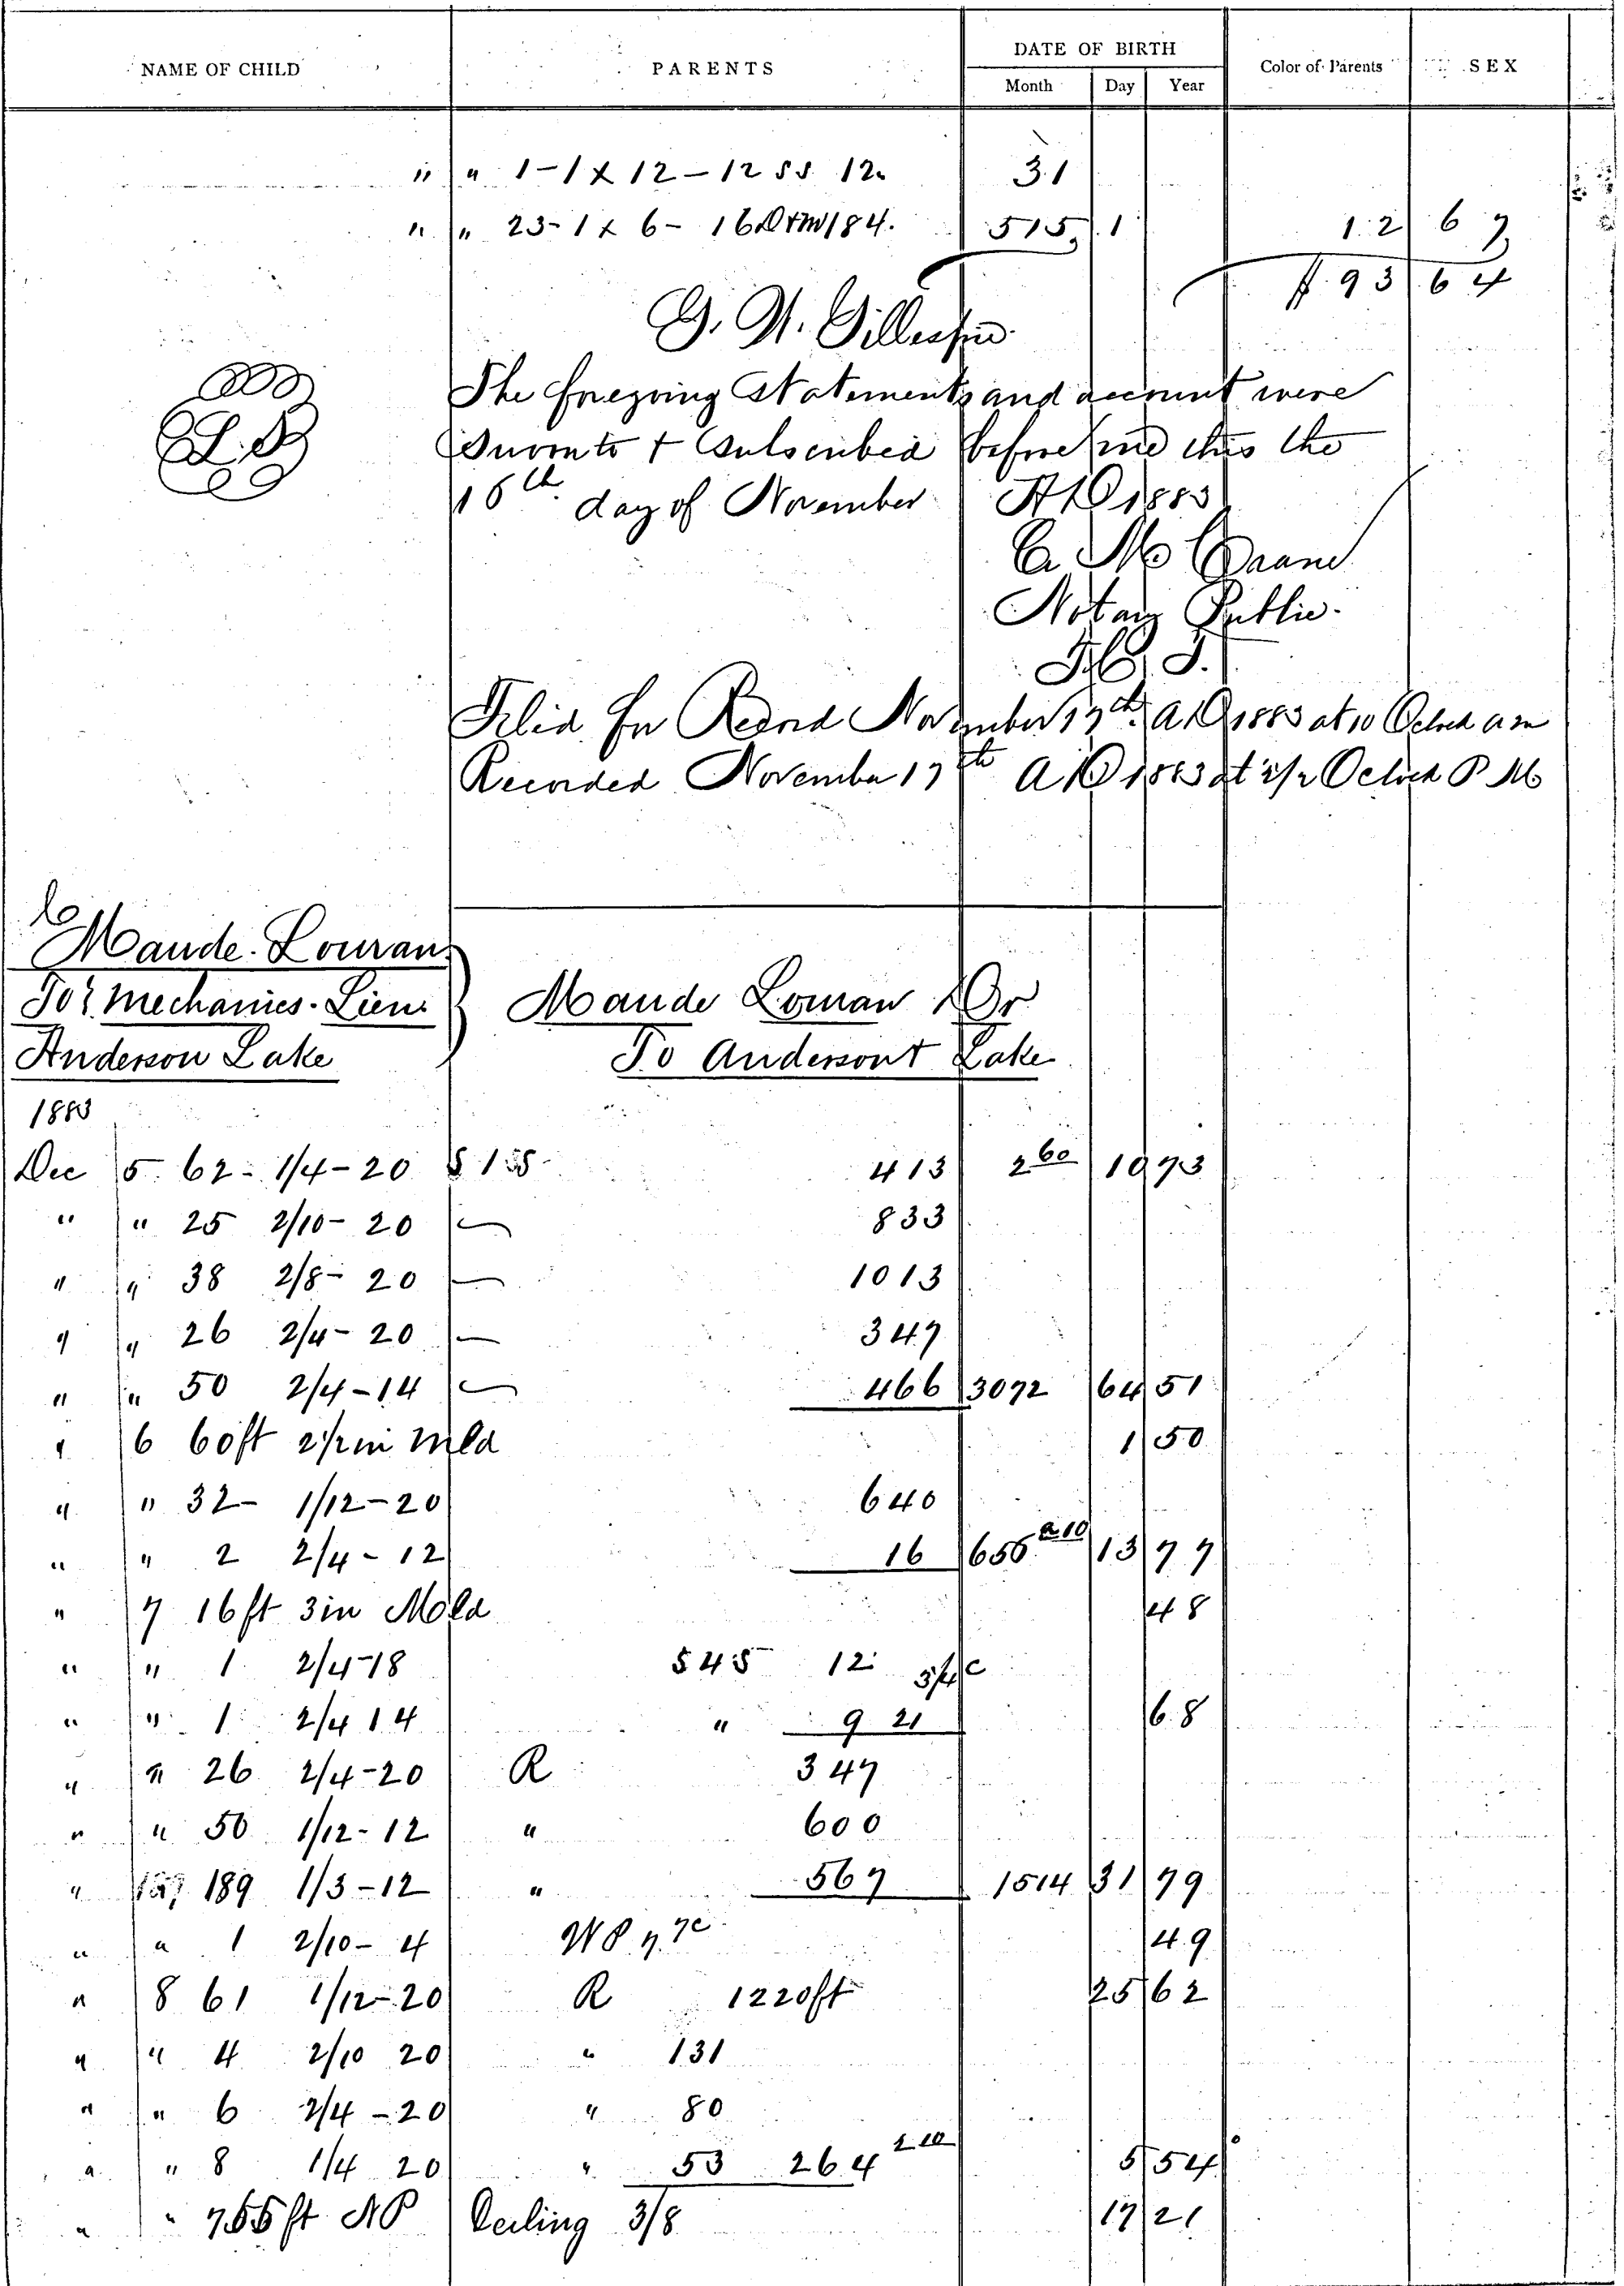 NAME OF CHILD PARENTS DATE OF BIRTH Month Day Year Color of Parents SEX
" " 1-1 x 12-12 SS 12. 31
" " 23-1 x 6-16 184. 515 1 12 67
$ 93 64
G. W. Gillespie
The foregoing statements and account were
Sworn to + Subscribed before me this the
16th day of November AD 1883
Notary Public
Filed for Record November 17th AD 1883 at 10 Oclock am
Recorded November 17th AD 1883 at 2 1/2 Oclock P M
L.S.
Maude Louran
To Mechanics Lien
Anderson Lake
Maude Louran Dr
To Anderson + Lake
1883
Dec 5 62 - 1/4-20 S 1 S 413 260 1073
" " 25 2/10-20 833
" " 38 2/8-20 1013
" " 26 2/4-20 347
" " 50 2/4-14 466 3072 64 51
" 6 60ft 2 1/2 in Mld 1 50
" " 32- 1/12-20 640
" " 2 2/4-12 16 656 210 13 77
" 7 16ft 3in Mold 48
" " 1 2/4-18 S4S 12
" " 1 2/4 14 " 9 21 68
" " 26 2/4-20 R 347
" " 50 1/12-12 " 600
" 189 1/3-12 " 567 1514 31 79
" " 1 2/10-4 49
" 8 61 1/12-20 R 1220ft 25 62
" " 4 2/10 20 " 131
" " 6 2/4-20 " 80
" " 8 1/4 20 " 53 264 210 5 54
" " 765ft NP Ceiling 3/8 17 21